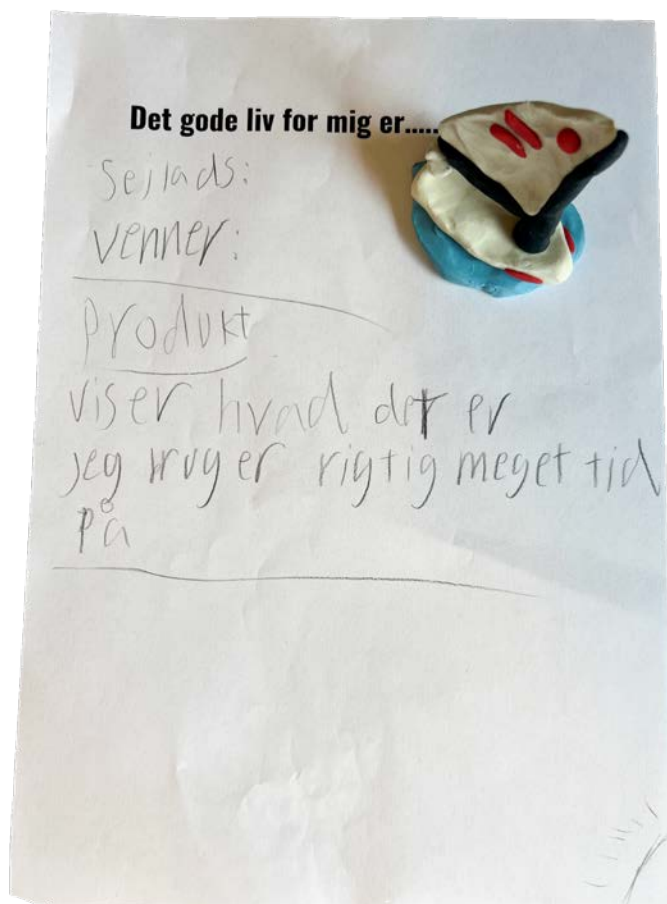 Det gode liv for mig er.....
Sejlads:
venner:
Produkt
viser hvad det er
jeg bruger rigtig meget tid
på